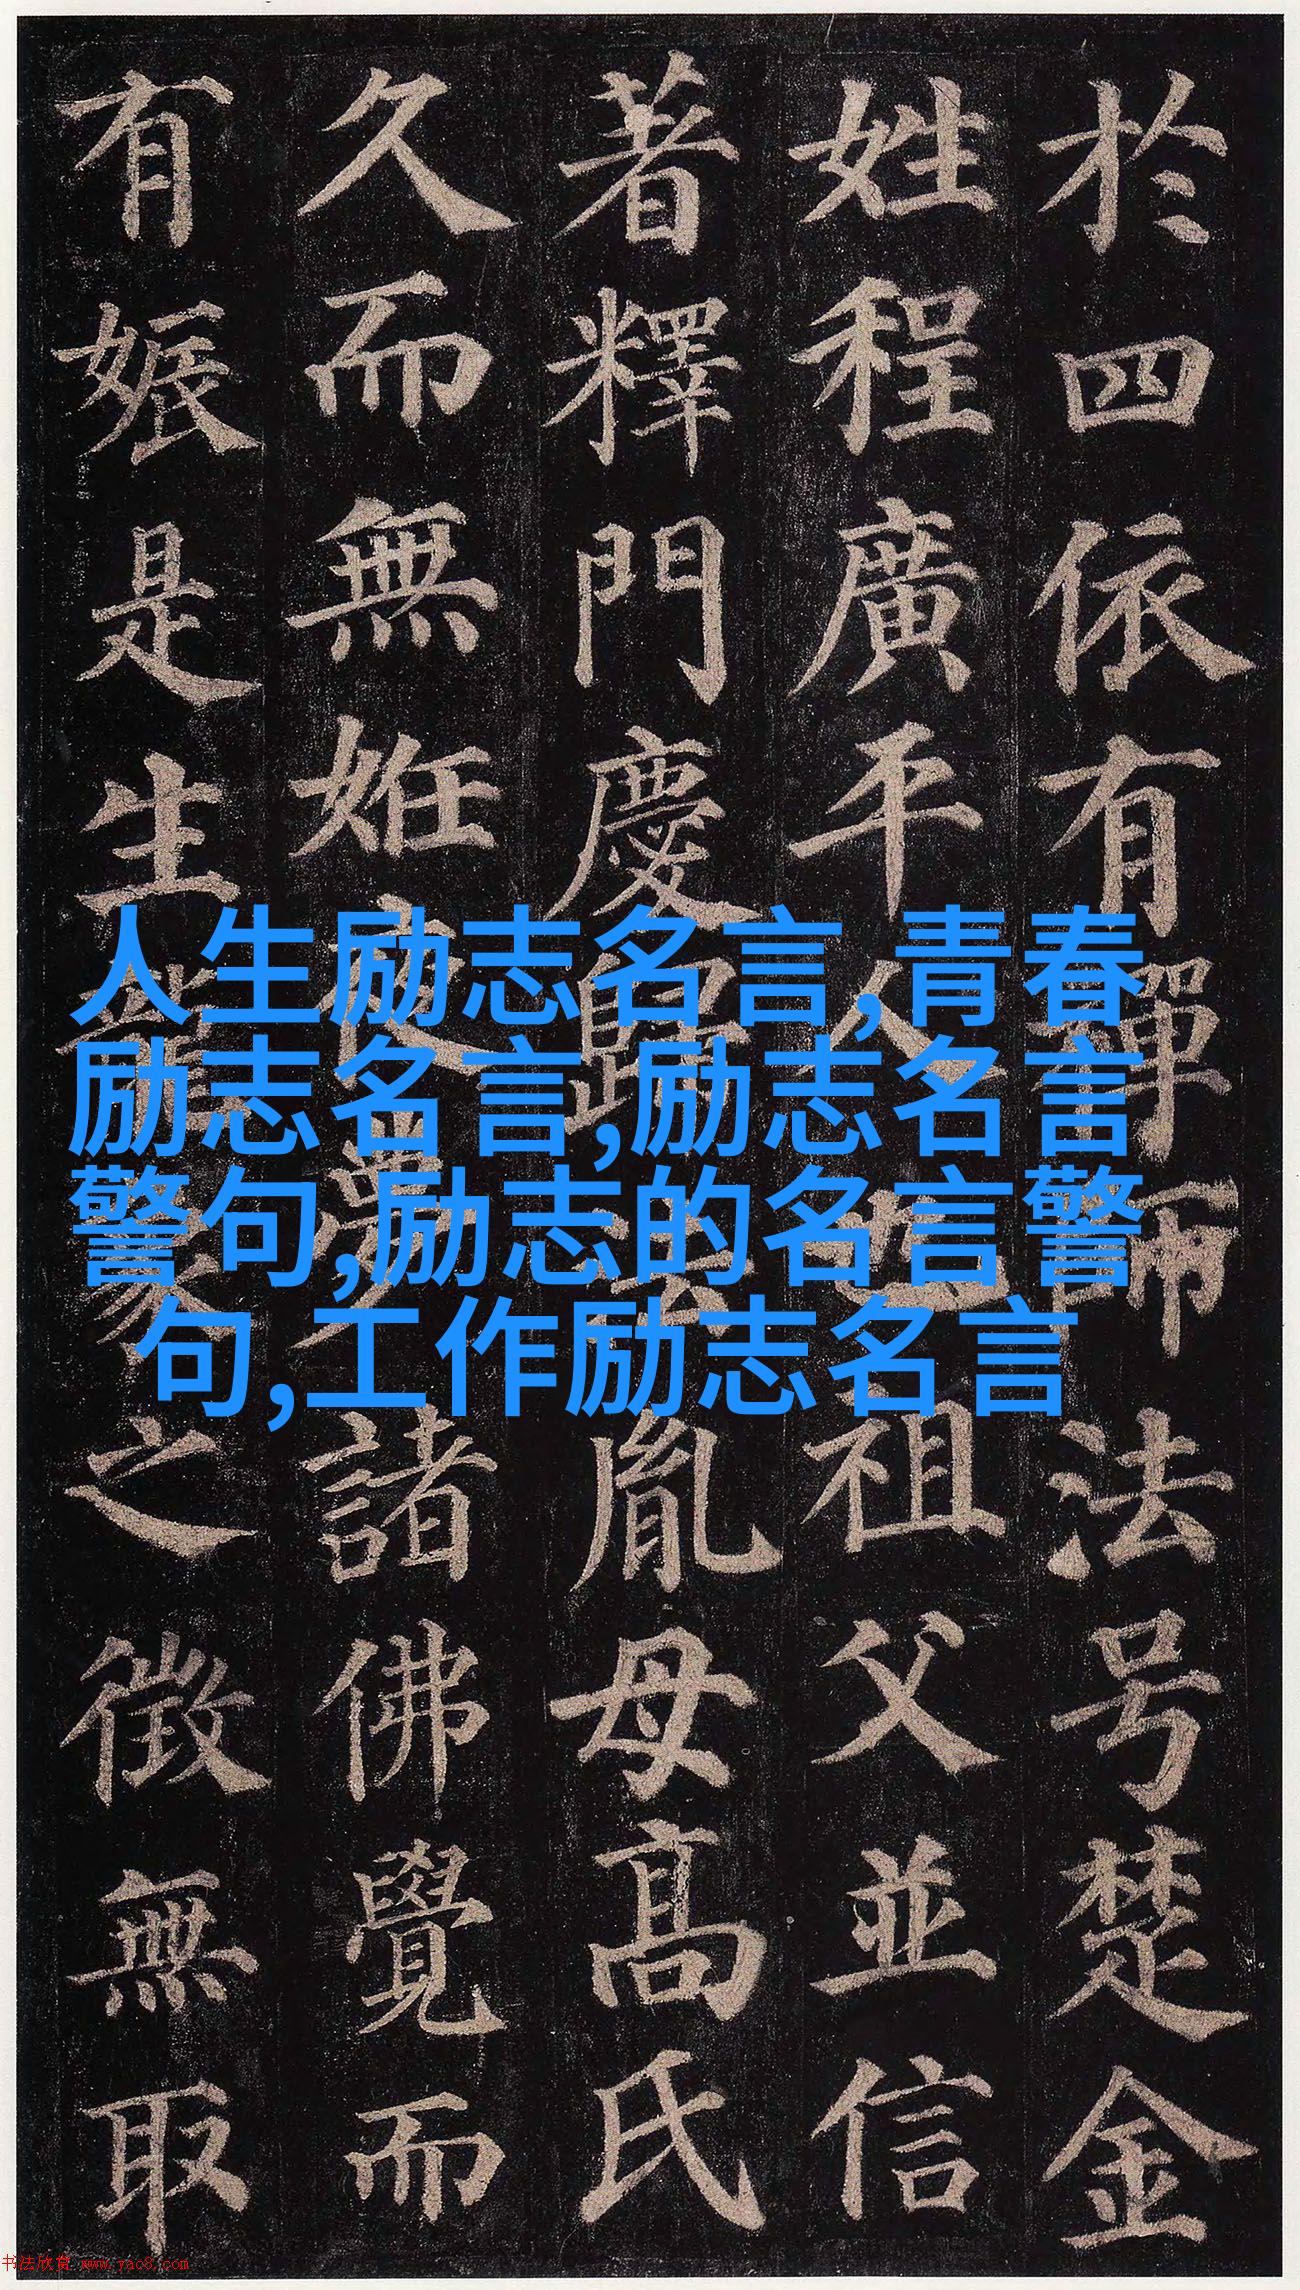 於四依有禪師法号楚金
姓程廣平人也祖父並信
著釋門慶歸法胤母高氏
久而無姙夜夢諸佛覺而
有娠是生龍象之徵無取
人生励志名言,青春
励志名言,励志名言
警句,励志的名言警
句,工作励志名言
书法欣赏 www.yac8.com